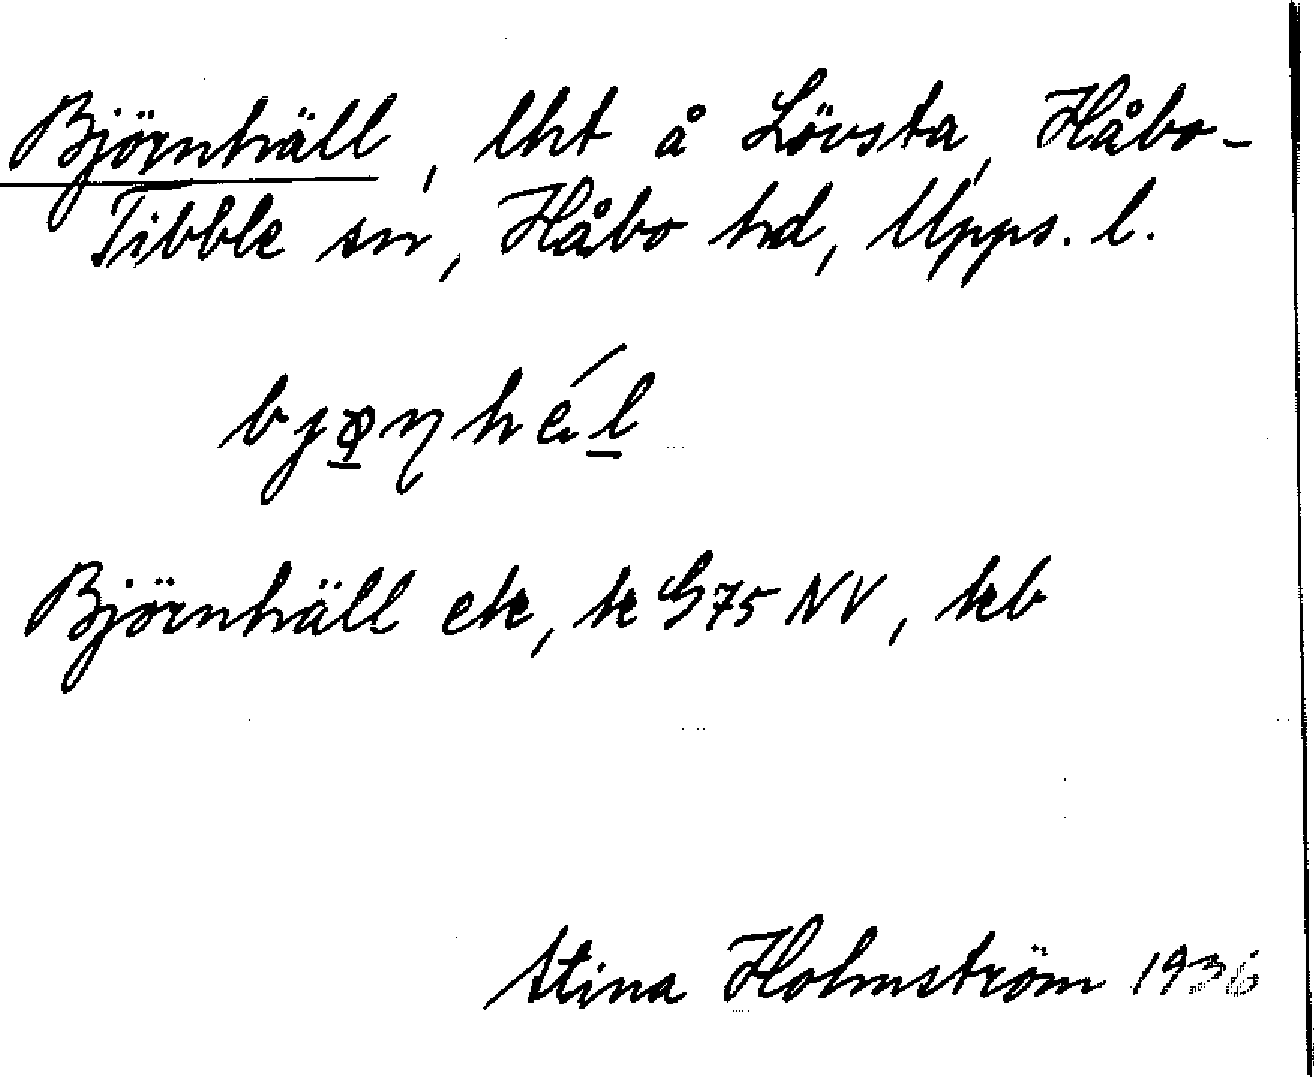 Björnhäll, lht å Lövsta, Håbo-
Tibble sn, Håbo hd, Upps. l.
Björnhäll ek, k G75 NV, kb
Stina Holmström 1936